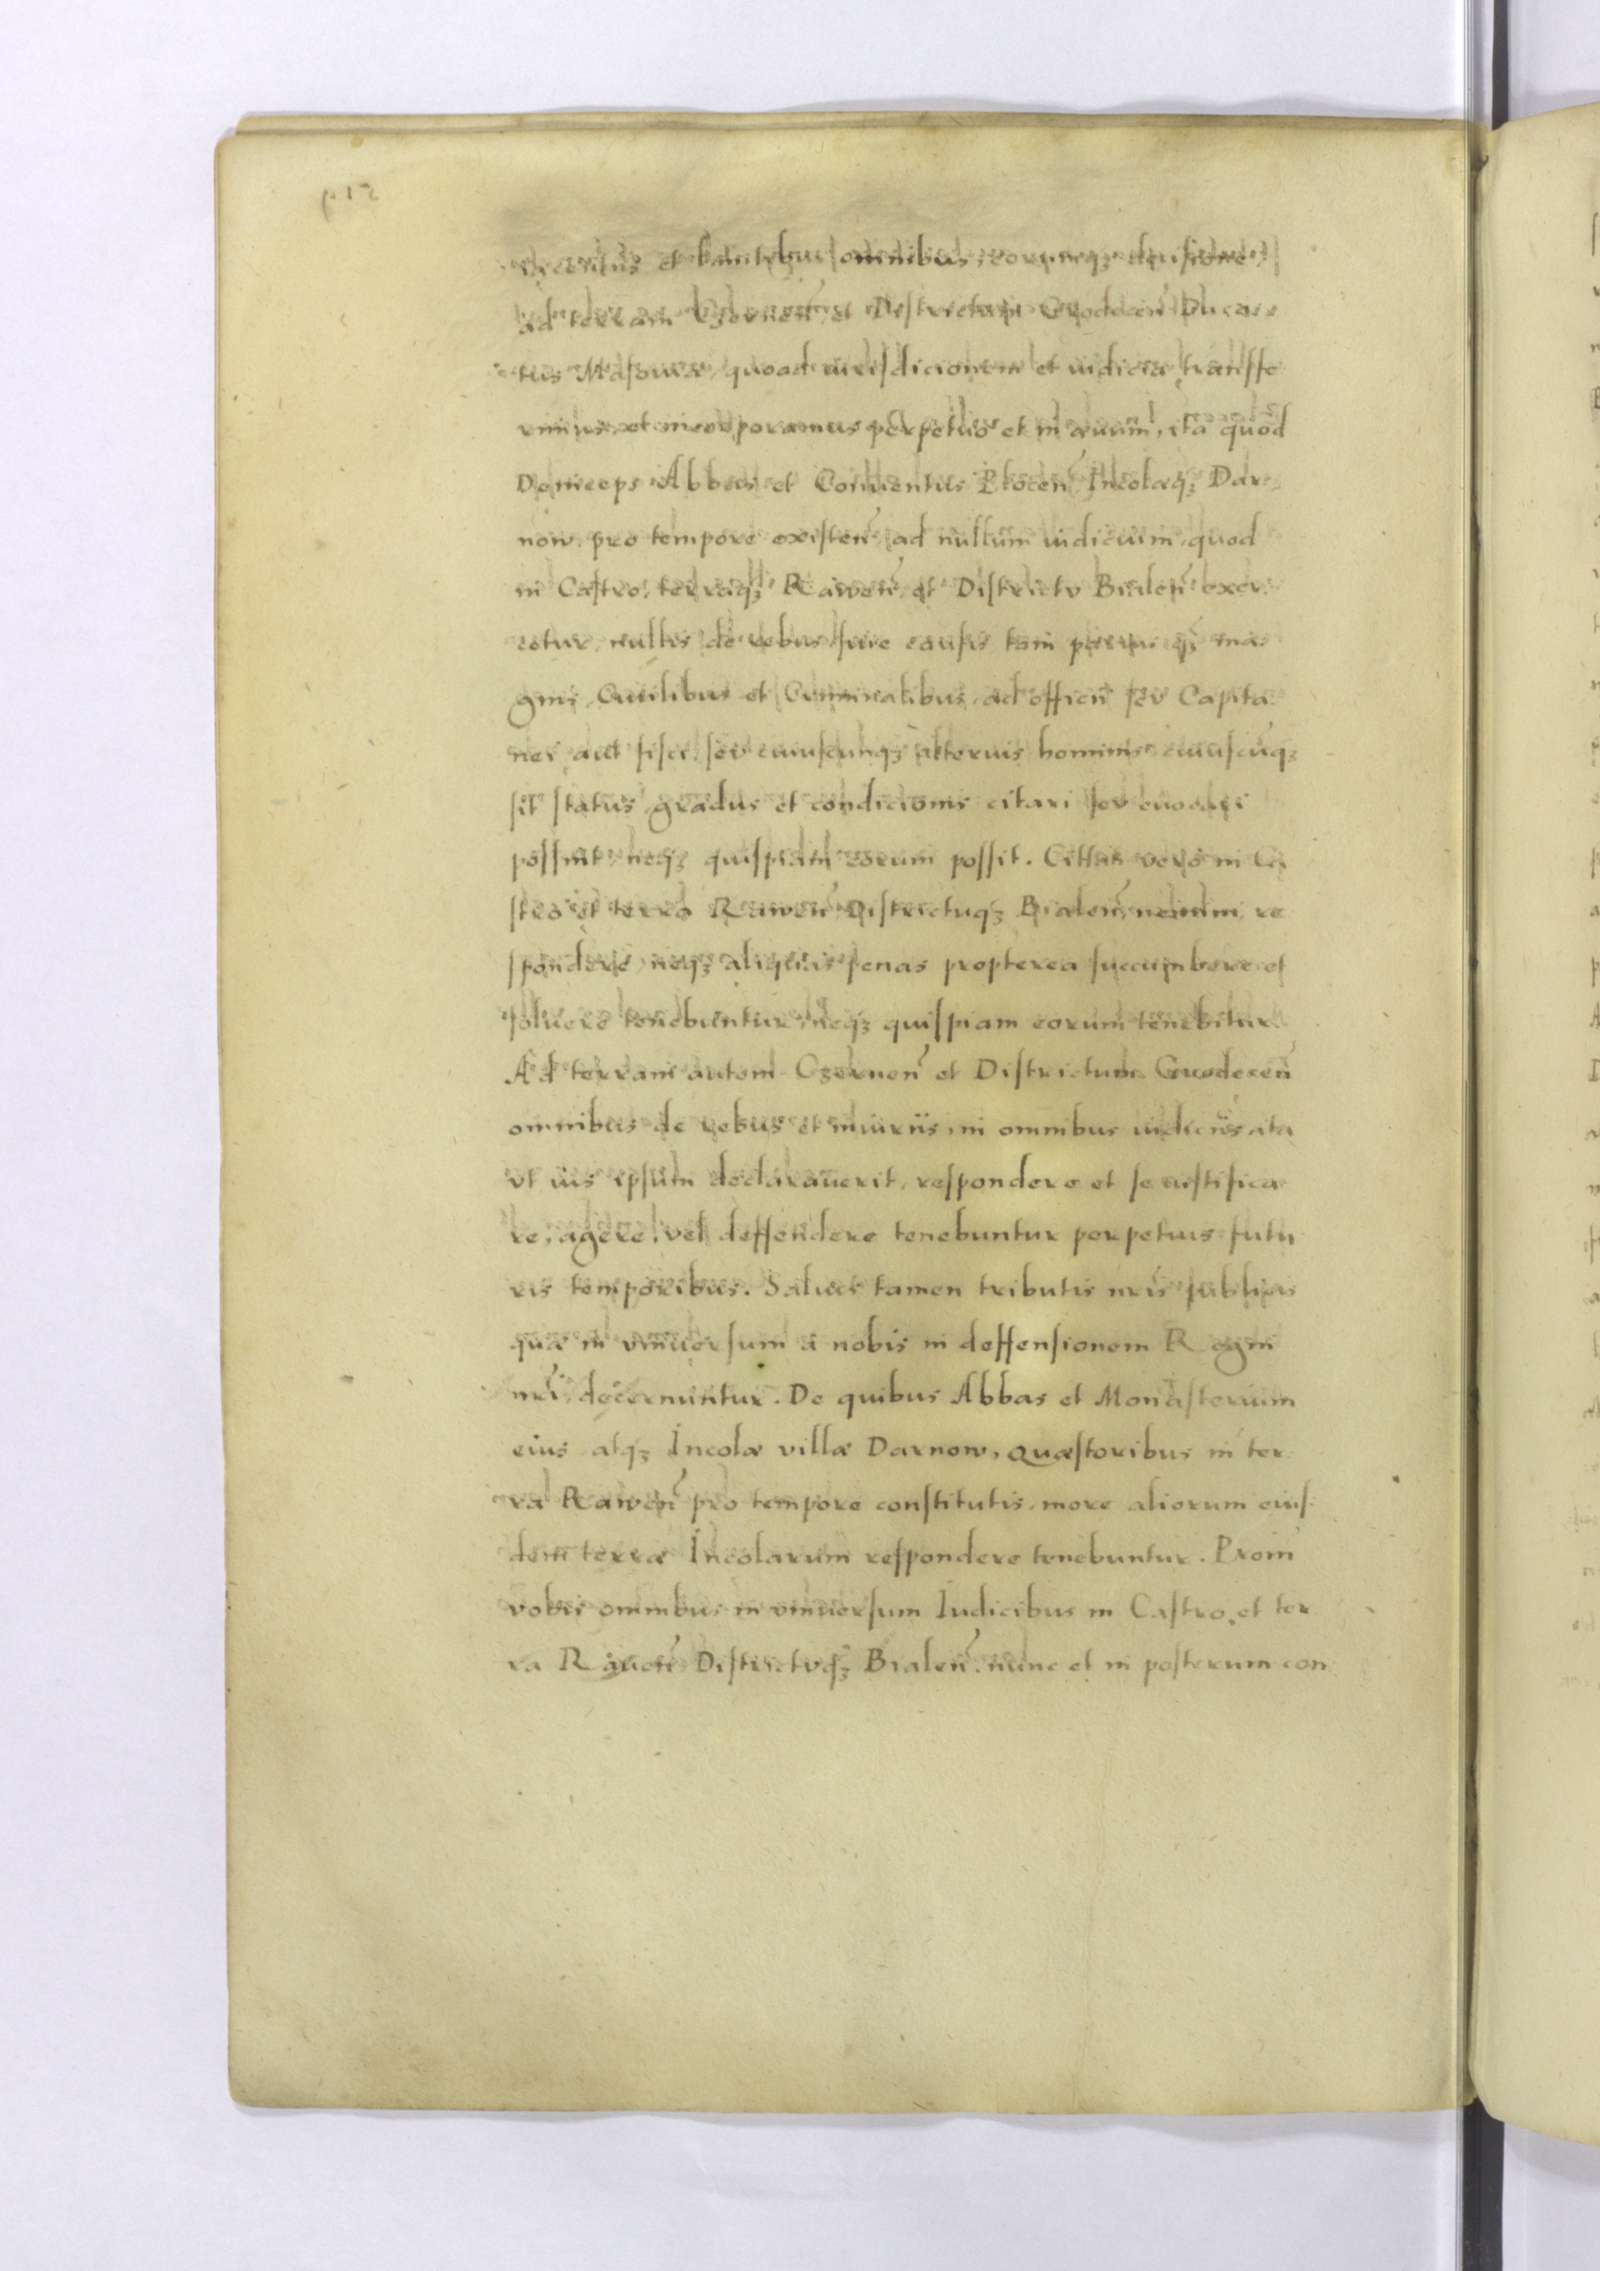 et omnibus,
ad terram Czernen̄ et Districtum Grodecen̄ Duca
tus Masouiæ, quoad iurisdicionem et iudicia transfe
rimus et incorporamus perpetuo et in æuum, ita quod
Deinceps Abbas et Conuentus Plocen̄ Incolæq3 Dar
now, pro tempore existen̄, ad nullum iudicium, quod
in Castro, terraq3 Rawen̄, et Districtu Bialen̄ exer
cetur, nullis de rebus siue causis tam paruis q̄3 ma
gnis, Ciuilibus et Criminalibus, ad officiū seu Capita
nei aut fisci, seu cuiuscunq3 alterius hominis cuiuscūq3
sit status gradus et condicionis citari seu euocari
possint, neq3 quispiam eorum possit. Citati vero in Ca
stro et terra Rawen̄ Districtuq3 Bialen̄, nemini re
spondere, neq3 aliquas penas propterea succumbere et
soluere tenebuntur, neq3 quispiam eorum tenebitur.
Ad terram autem Czernen̄ et Districtum Grodecen̄
omnibus de rebus et iniuriis, in omnibus iudiciis, ita
vt ius ipsum declarauerit, respondere et se iustifica
re, agere, vel deffendere tenebuntur perpetuis futu
ris temporibus. Saluis tamen tributis nr̄is publicis
quæ in vniuersum à nobis in deffensionem Regni
nr̄i, decernuntur. De quibus Abbas et Monasterium
eius atq3 Incolæ villæ Darnow, Quæstoribus in ter
ra Rawen̄ pro tempore constitutis, more aliorum eius
dem terræ Incolarum respondere tenebuntur. Proin
vobis omnibus in vniuersum Iudicibus in Castro, et ter
ra Rauen̄ Districtuq3 Bialen̄, nunc et in posterum con